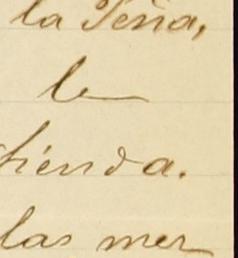 la Peña,
le
tienda.
las mer